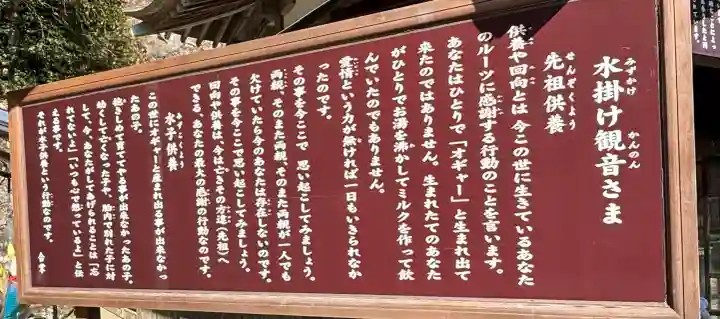 水掛け観音さま
みずかけ かんのん
先祖供養
せんぞくよう
供養や回向とは今この世に生きているあなた
のルーツに感謝する行動のことを言います。
あなたはひとりで「オギャー」と生まれ出て
来たのではありません。生まれたてのあなた
がひとりでお湯を沸かしてミルクを作って飲
んでいたのでもありません。
愛情という力が無ければ一日もいきられなか
ったのです。
その事を今ここで 思い起こしてみましょう。
両親、そのまた両親、そのまた両親が一人でも
欠けていたら今のあなたは存在しないのです。
その事を今ここで思い起こしてみましょう。
回向や供養は、今は亡きその方達（先祖）へ
できる、あなたの最大の感謝の行動なのです。
水子供養
みずこくよう
この世に「オギャー」と産まれ出る事が出来なかっ
たあの子。
抱きしめて育ててやる事が出来なかったあの子。
幼くして亡くなった子や、胎内で別れた子に対
して、今、あなたがしてあげられることは「忘
れてないよ」「いつも心で想っているよ」と伝
える事です。
それが水子供養という行動なのです。
合掌